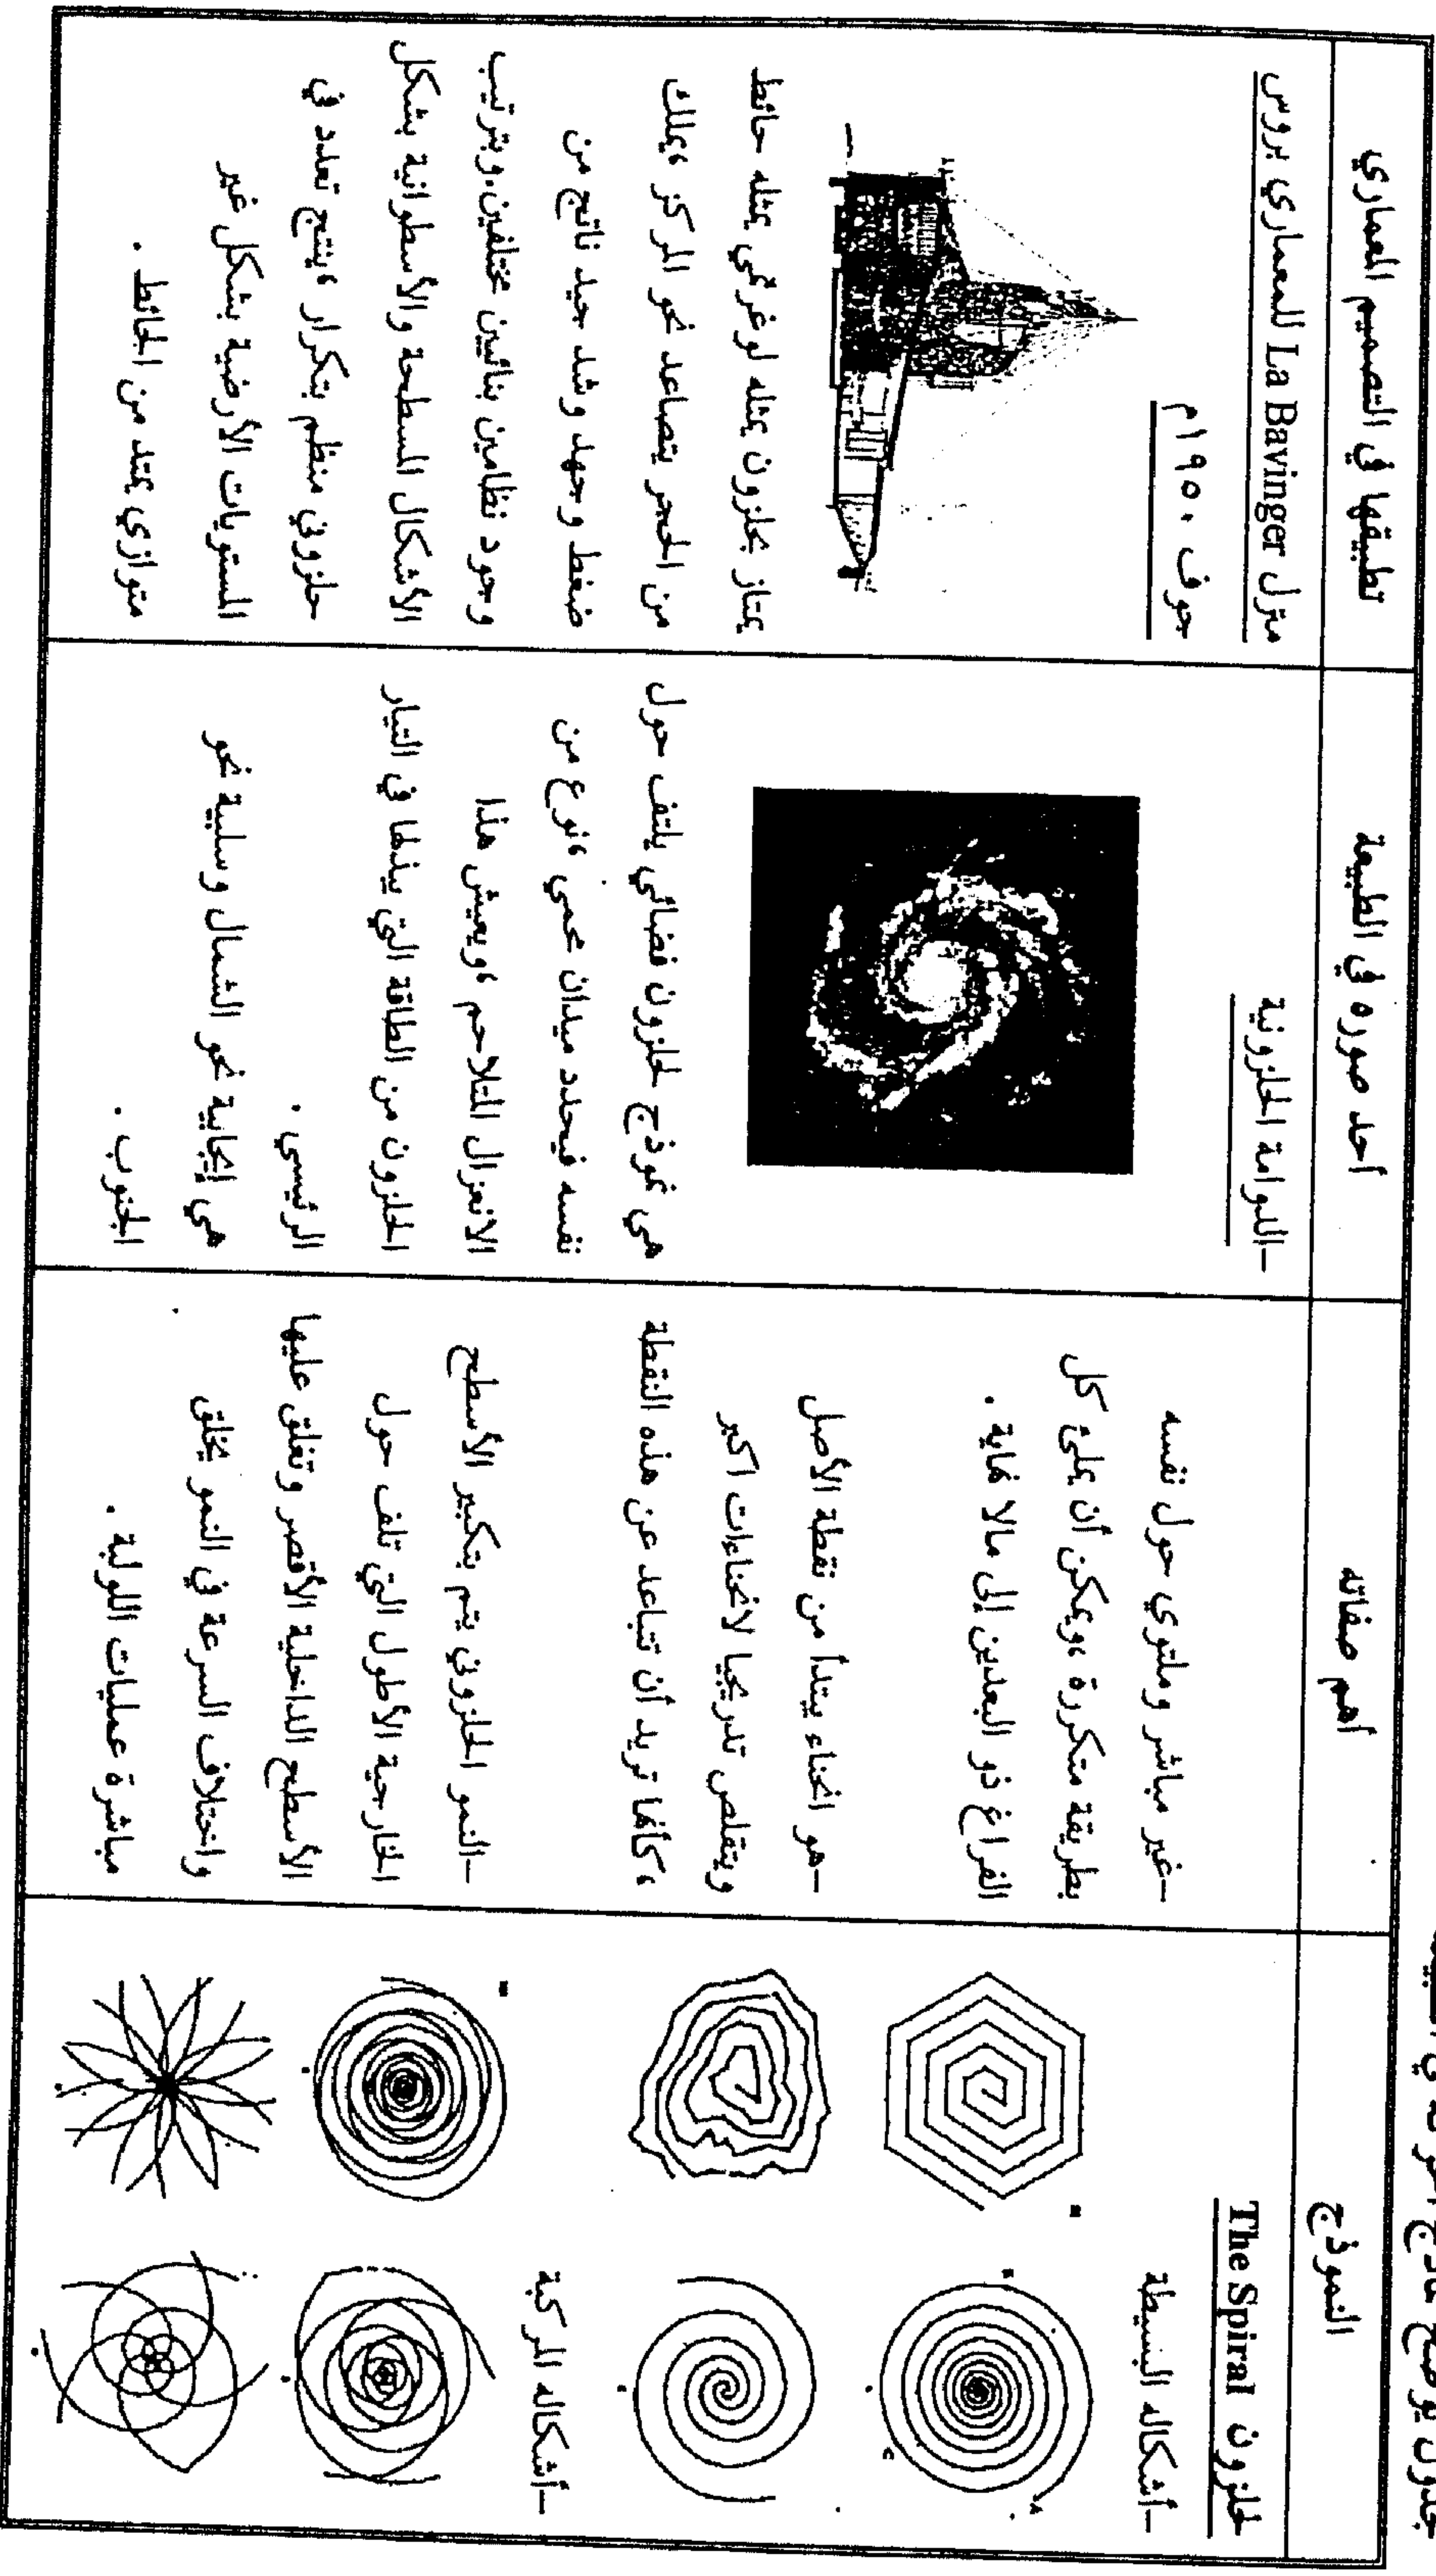 جدول يوضح نماذج
النموذج
أهم صفاته
أحد صوره في الطبيعة
تطبيقها في التصميم المعماري
الحلزون The Spiral
-أشكاله البسيطة
-أشكاله المركبة
-غير مباشر وملتوي حول نفسه
بطريقة متكررة ،ويمكن أن يملئ كل
الفراغ ذو البعدين إلى مالا نهاية .
-هو انحناء يبتدأ من نقطة الأصل
ويتقلص تدريجيا لانحناءات اكبر
،كأنها تريد أن تتباعد عن هذه النقطة
-النمو الحلزوني يتم بتكبير الأسطح
الخارجية الأطول التي تلف حول
الأسطح الداخلية الأقصر وتغلق عليها
واختلاف السرعة في النمو يخلق
مباشرة عمليات اللولبة .
-الدوامة الحلزونية
هي نموذج لحلزون فضائي يلتف حول
نفسه فيحدد ميدان محمي ،نوع من
الانعزال المتلاحم ،ويعيش هذا
الحلزون من الطاقة التي يبذلها في التيار
الرئيسي .
هي إيجابية نحو الشمال وسلبية نحو
الجنوب .
منزل La Bavinger للمعماري بروس
جوف ١٩٥٠م
يمتاز بحلزون يمثله لوغرثمي يمثله حائط
من الحجر يتصاعد نحو المركز ،يملك
ضغط وجهد وشد جيد ناتج من
وجود نظامين بنائيين مختلفين.وبترتيب
الأشكال المسطحة والأسطوانية بشكل
حلزوني منظم بتكرار ،ينتج تعدد في
المستويات الأرضية بشكل غير
متوازي يمتد من الحائط .